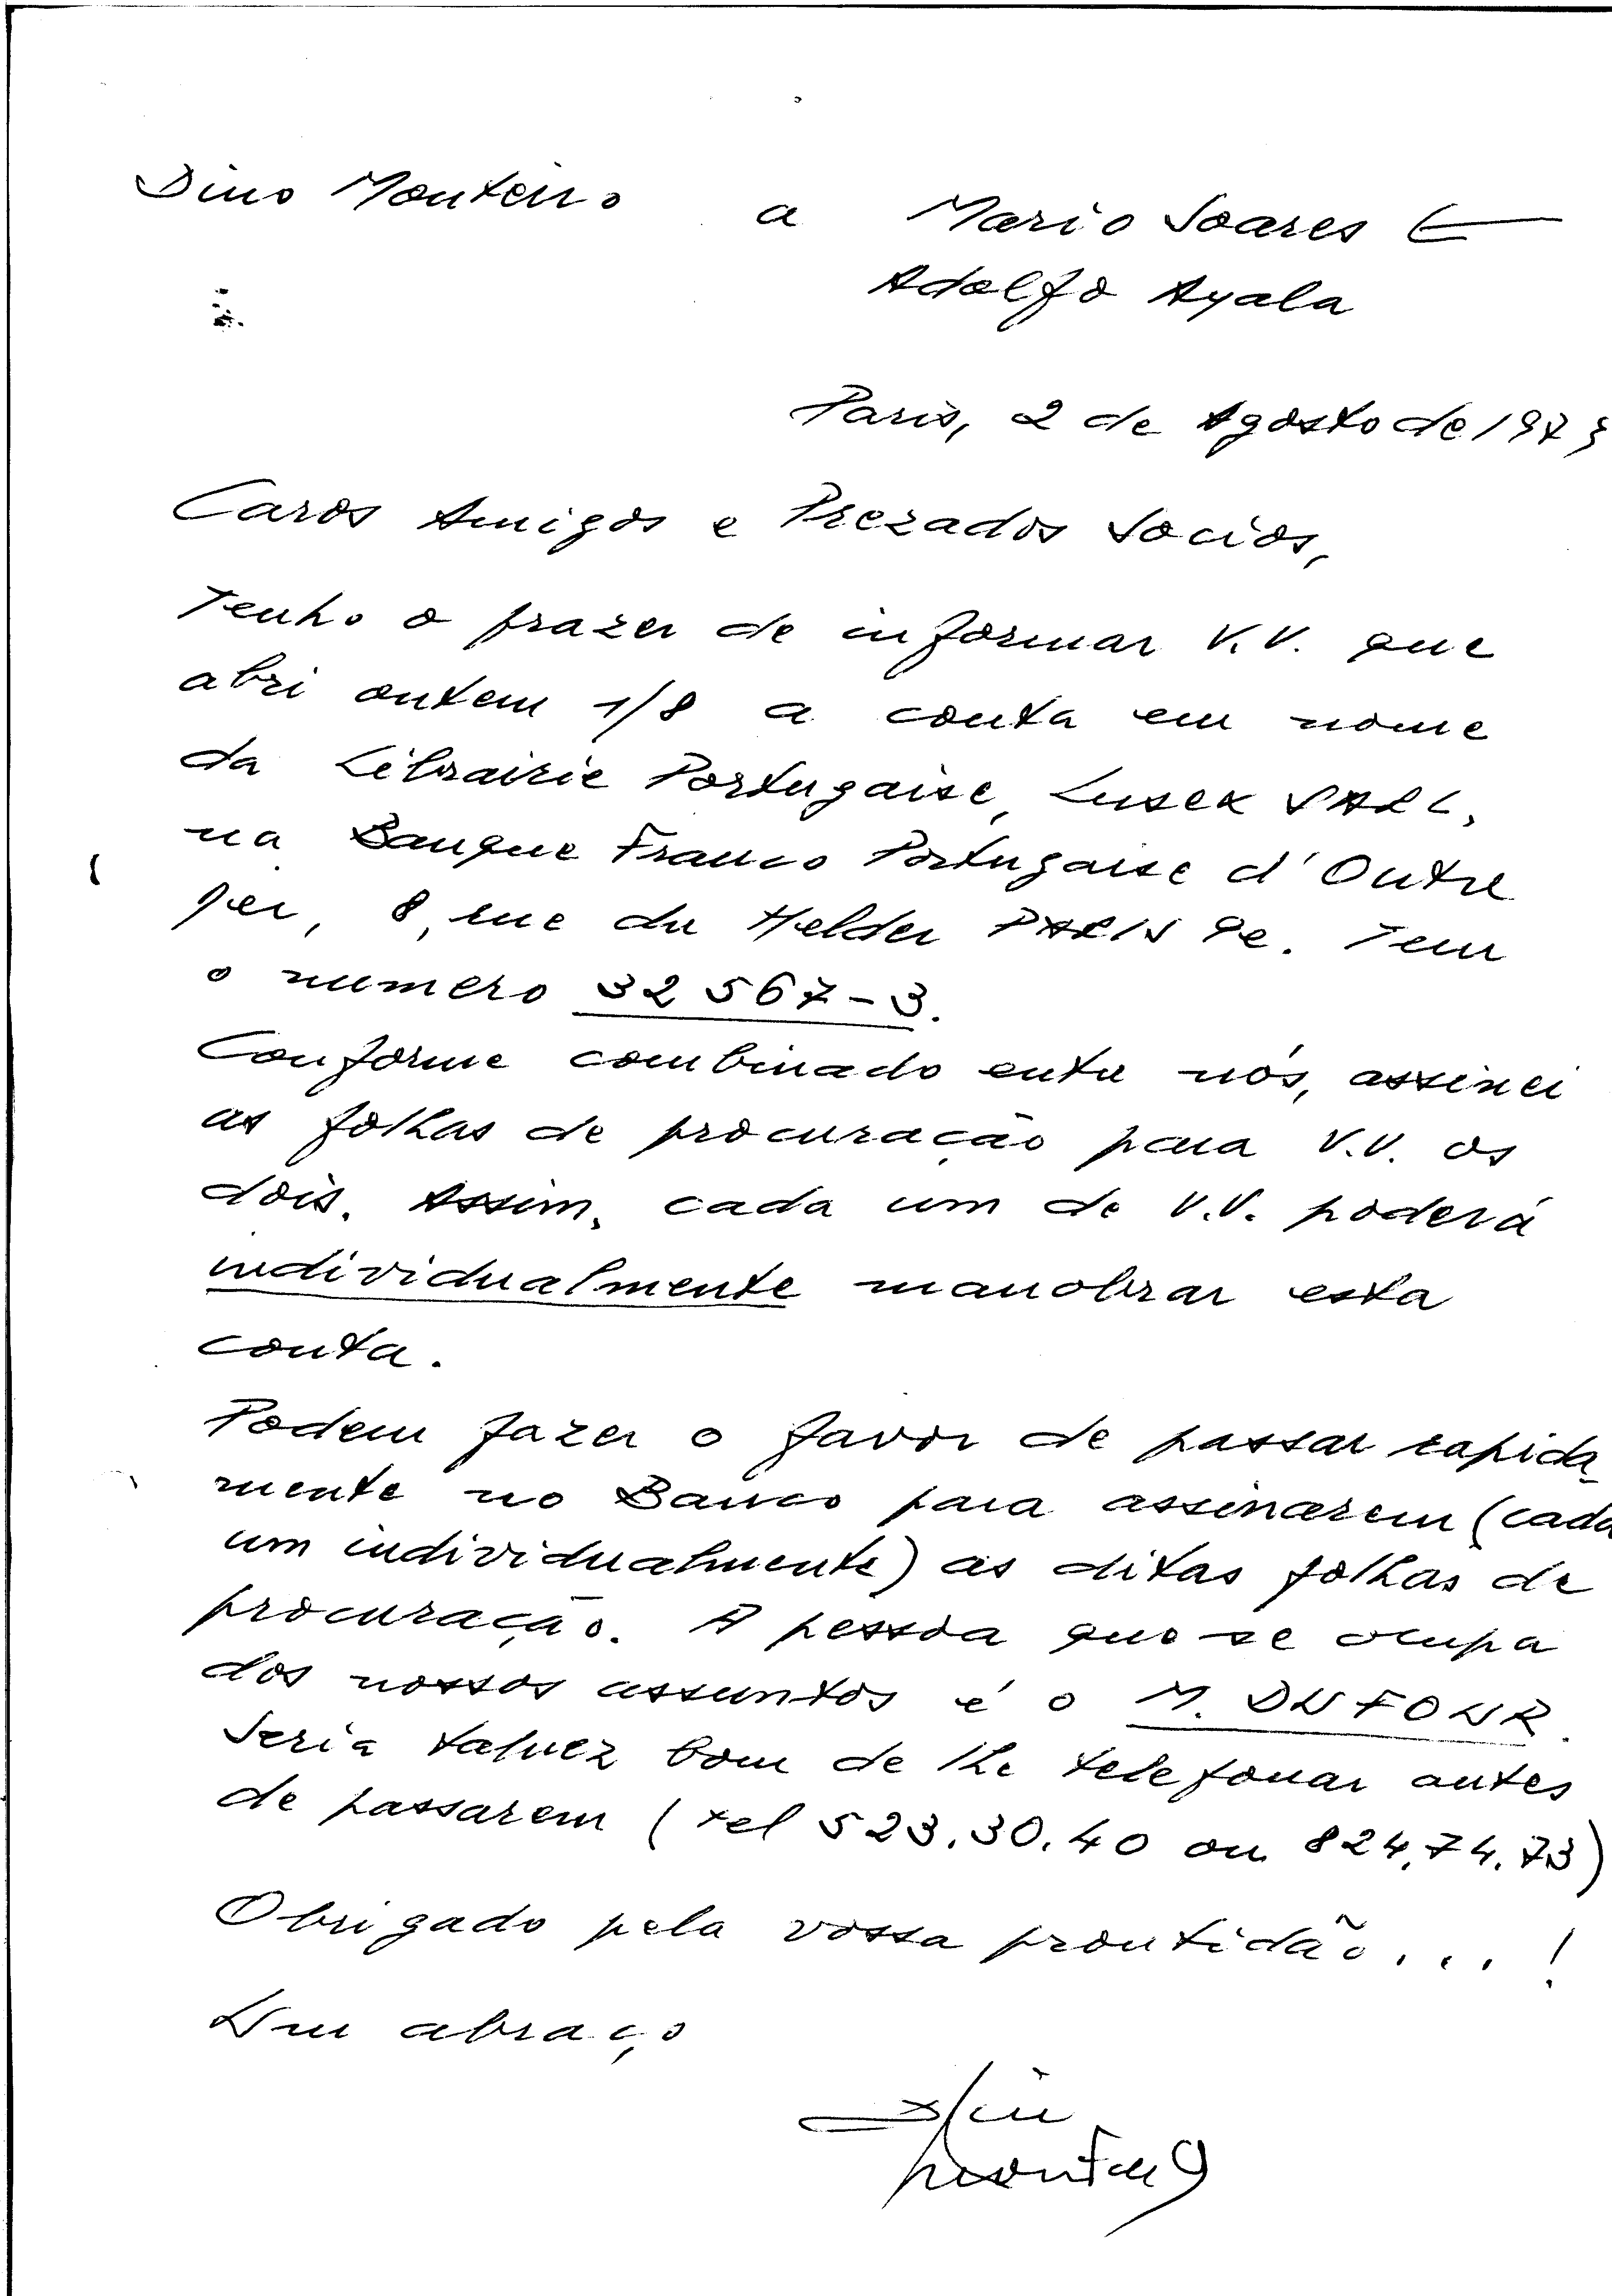 Dino Monteiro a Mario Soares
Adolfo Ayala
Paris, 2 de Agosto de 1973
Caros Amigos e Prezados Socios,
Tenho o prazer de informar V.V. que
abri ontem 1/8 a conta em nome
da Librairie Portugaise, Lusex SARL,
na Banque Franco Portugaise d'Outre
Mer, 8, rue du Helder PARIS 9e. Tem
o numero 32 567-3.
Conforme combinado entre nós, assinei
as folhas de procuração para V.V. os
dois. Assim, cada um de V.V. poderá
individualmente manobrar esta
conta.
Podem fazer o favor de passar rapida-
mente no Banco para assinarem (cada
um individualmente) as ditas folhas de
procuração. A pessoa que se ocupa
dos nossos assuntos é o M. DUFOUR.
Seria talvez bom de lhe telefonar antes
de passarem (tel 523.30.40 ou 824.74.73)
Obrigado pela vossa prontidão...!
Um abraço